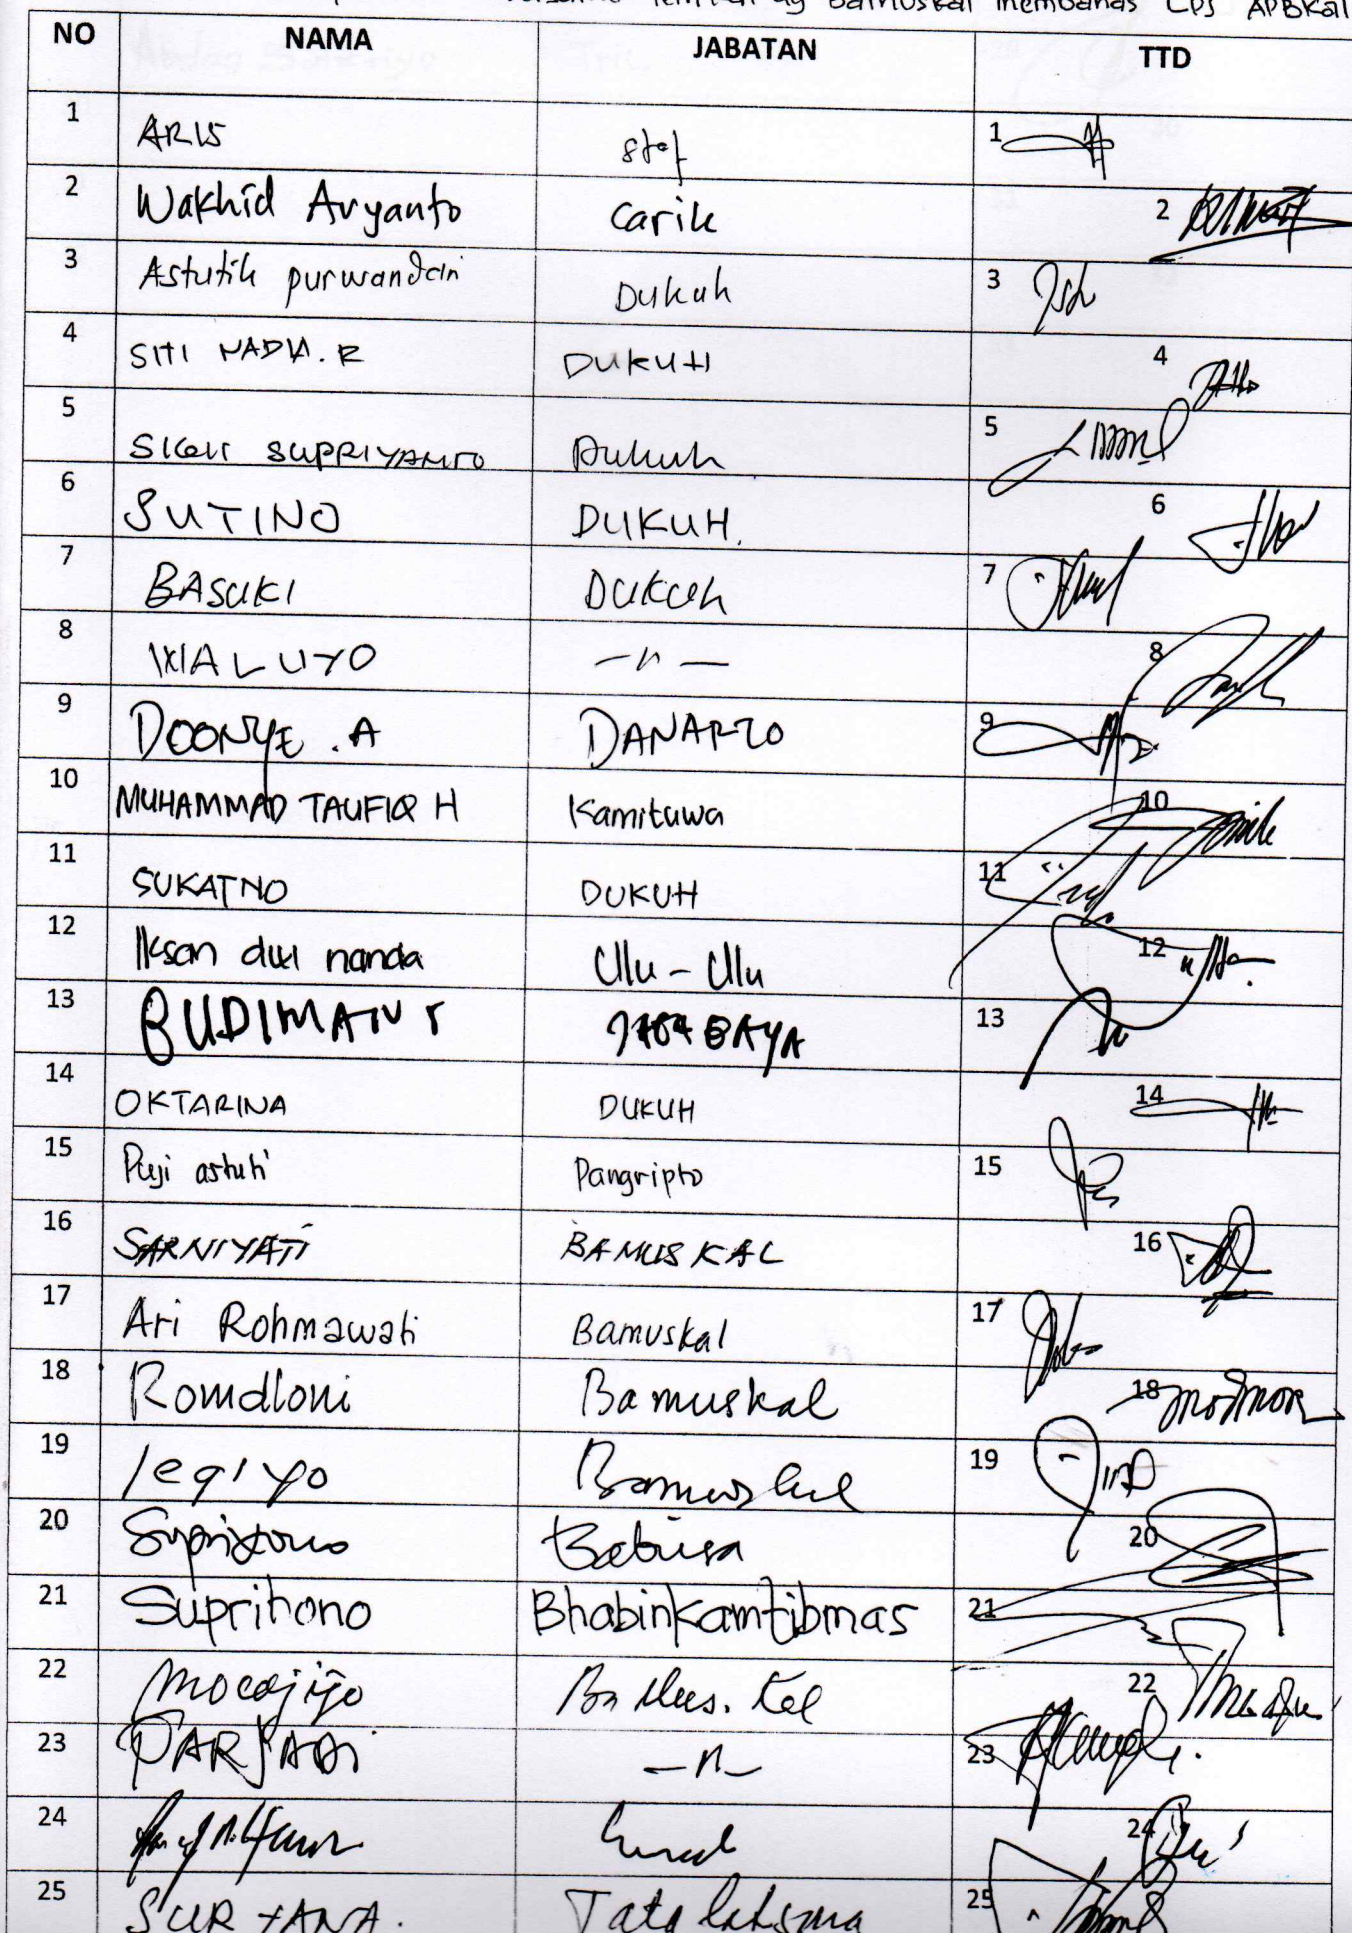 dg Bamuskal membahas LPJ APBKal
NO NAMA JABATAN TTD
1 ARIS Staf 1
2 Wakhid Aryanto Carik 2
3 Astutik purwandari Dukuh 3
4 SITI NADIA. R DUKUH 4
5 SIGIT SUPRIYANTO Dukuh 5
6 SUTINO DUKUH. 6
7 BASUKI DUKUH 7
8 WALUYO —〃— 8
9 DOONYE . A DANARTO 9
10 MUHAMMAD TAUFIQ H Kamituwa 10
11 SUKATNO DUKUH 11
12 Iksan dwi nanda Ulu - Ulu 12
13 BUDIMAN 13
14 OKTARINA DUKUH 14
15 Puji astuti Pangripto 15
16 SARNIYATI BAMUSKAL 16
17 Ari Rohmawati Bamuskal 17
18 Romdloni Bamuskal 18
19 Legiyo Bamuskal 19
20 Supriyono Babinsa 20
21 Suprihono Bhabinkamtibmas 21
22 Ba Mus. Kal 22
23 PARYADI —〃— 23
24 24
25 SURYANA. Tata laksana 25